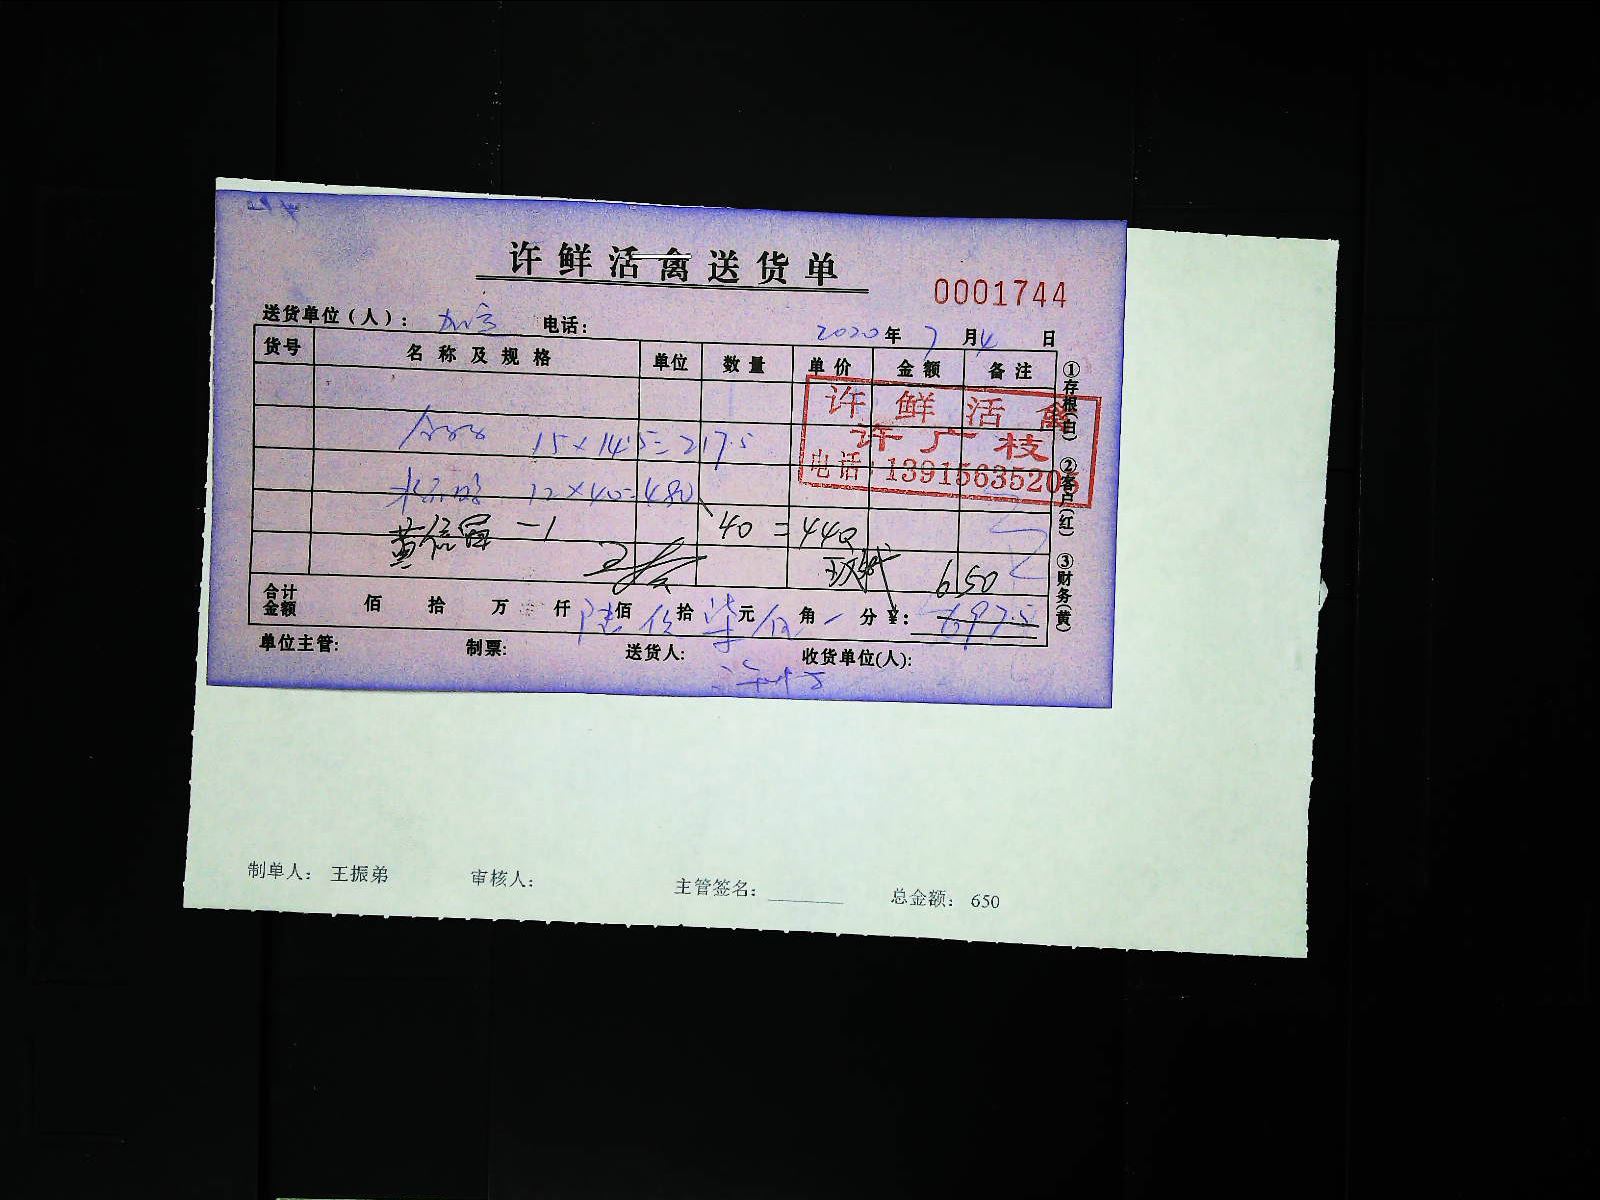 许鲜活禽送货单
0001744
送货单位(人)： 电话：
2020年7月4日
货号 名称及规格 单位 数量 单价 金额 备注
许鲜活禽
许广枝
电话:13915635205
15×14.5=217.5
12×40=480
-1 40=440
650
合计金额 佰 拾 万 仟陆佰 拾柒元伍角 分¥: 697.5
单位主管: 制票: 送货人: 收货单位(人):
①存根(白) ②客户(红) ③财务(黄)
制单人： 王振弟 审核人： 主管签名： 总金额： 650